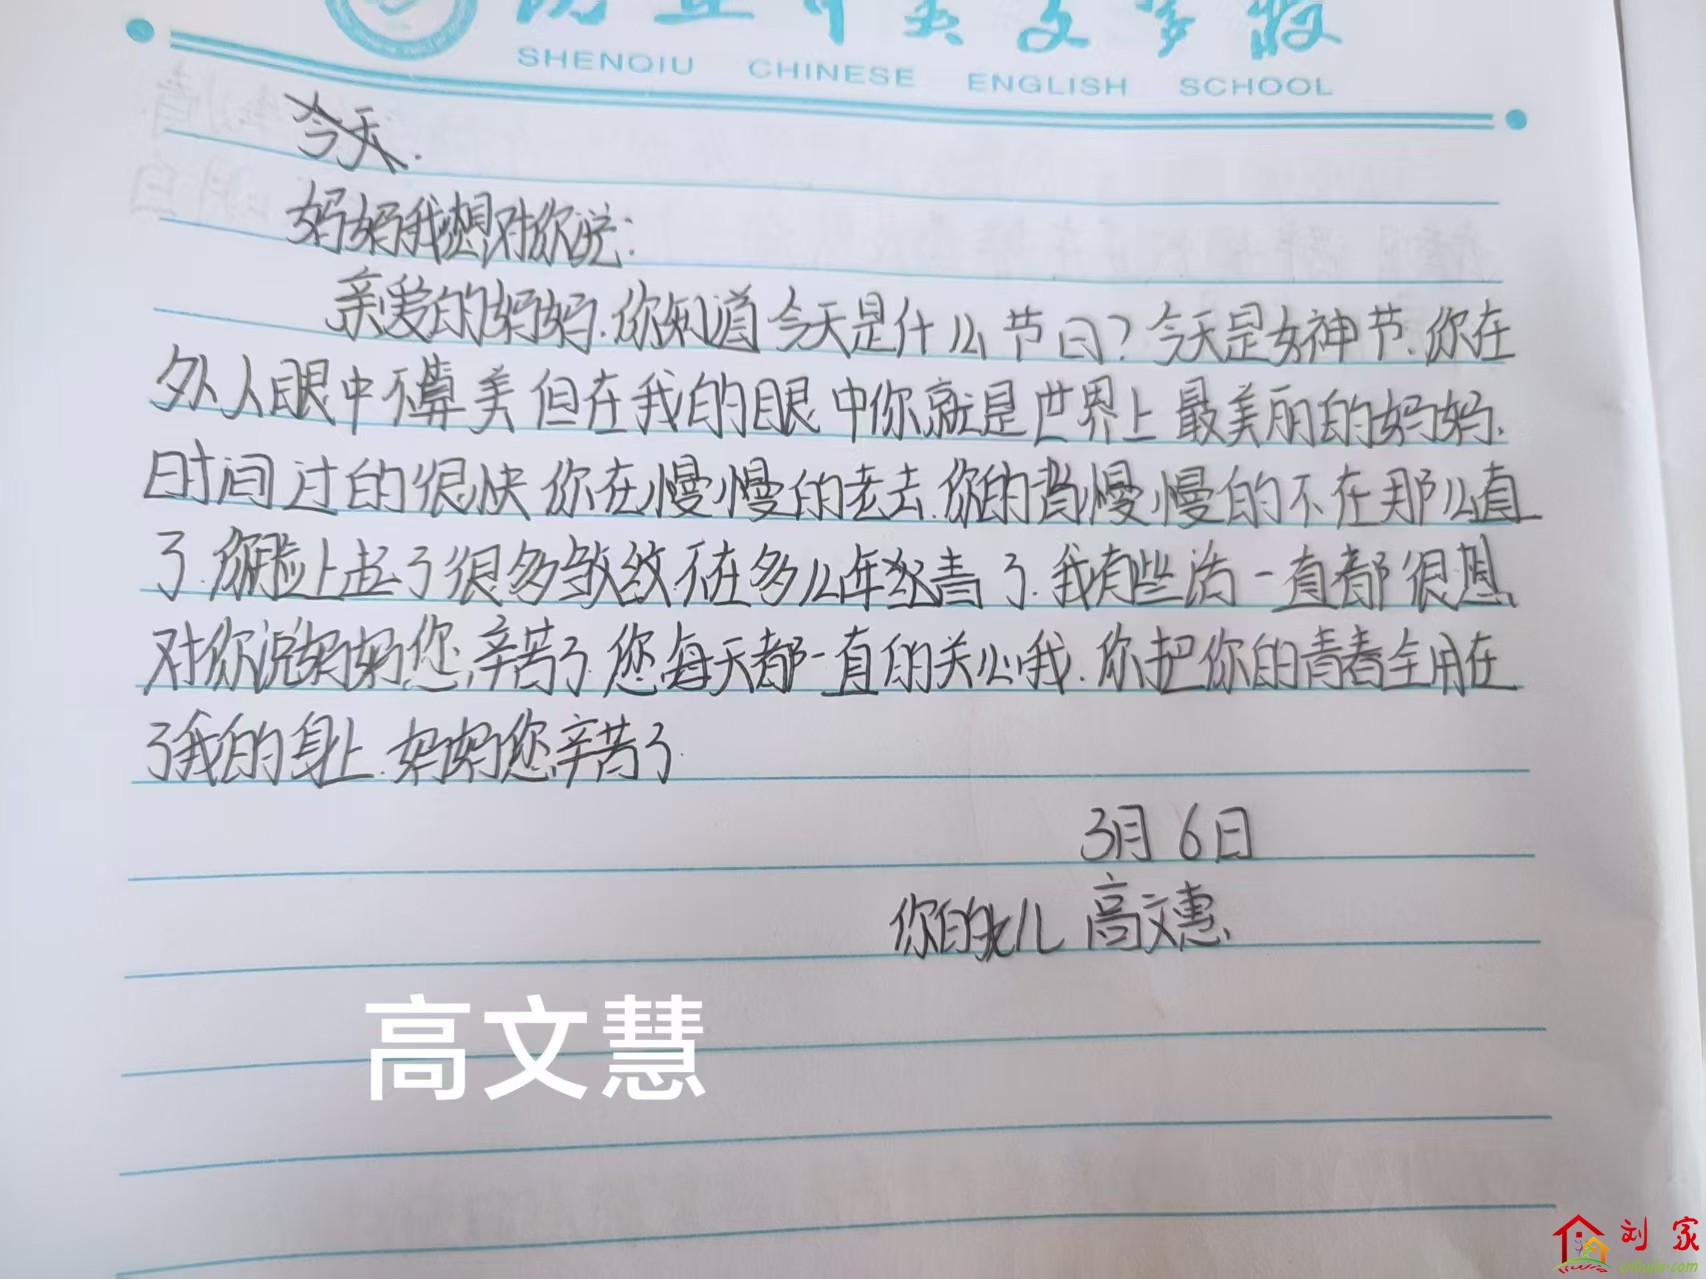 SHENQIU CHINESE ENGLISH SCHOOL
今天.
妈妈我想对你说:
亲爱的妈妈.你知道今天是什么节日?今天是女神节.你在
外人眼中不算美但在我的眼中你就是世界上最美丽的妈妈.
时间过的很快你在慢慢的老去.你的背慢慢的不在那么直
了.你脸上起了很多皱纹不在多么年轻青了.我有些话一直都很想
对你说妈妈您辛苦了.您每天都一直的关心我.你把你的青春全用在
了我的身上.妈妈您辛苦了.
3月6日
你的女儿 高文惠
高文慧
刘家